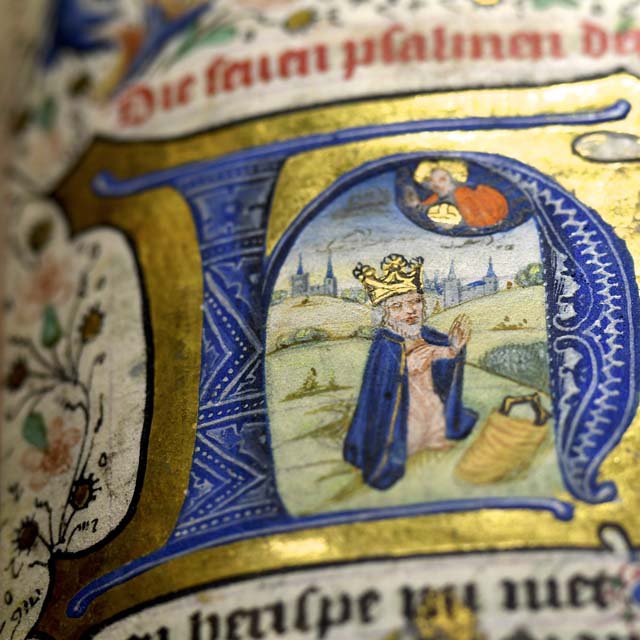 Die seuen psalmen de
H
en berispe mi niet